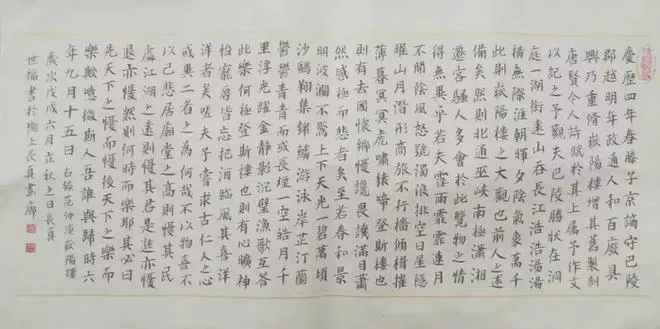 慶歷四年春滕子京謫守巴陵
郡越明年政通人和百廢具
興乃重脩嶽陽樓增其舊製刻
唐賢今人詩賦於其上屬予作文
以記之予觀夫巴陵勝狀在洞
庭一湖銜遠山吞長江浩浩湯湯
橫無際涯朝暉夕陰氣象萬千
此則嶽陽樓之大觀也前人之述
備矣然則北通巫峽南極瀟湘
遷客騷人多會於此覽物之情
得無異乎若夫霪雨霏霏連月
不開陰風怒號濁浪排空日星隱
曜山月潛形商旅不行檣傾楫摧
薄暮冥冥虎嘯猿啼登斯樓也
則有去國懷鄉憂讒畏譏滿目蕭
然感極而悲者矣至若春和景
明波瀾不驚上下天光一碧萬頃
沙鷗翔集錦鱗游泳岸芷汀蘭
鬱鬱青青而或長煙一空皓月千
里浮光躍金靜影沉璧漁歌互答
此樂何極登斯樓也則有心曠神
怡寵辱皆忘把酒臨風其喜洋
洋者矣嗟夫予嘗求古仁人之心
或異二者之為何哉不以物喜不
以己悲居廟堂之高則憂其民
處江湖之遠則憂其君是進亦憂
退亦憂然則何時而樂耶其必曰
先天下之憂而憂後天下之樂而
樂歟噫微斯人吾誰與歸時六
年九月十五日 右錄范仲淹嶽陽樓
歲次戊戌六月立秋之日長真
世福書於上長真書廊